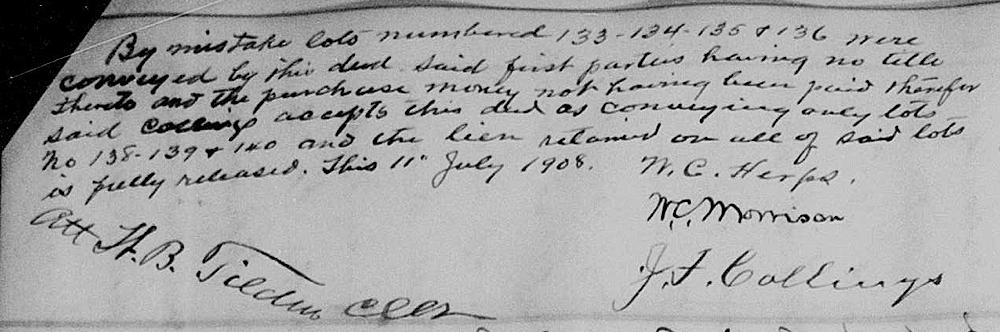 By mistake lots numbered 133-134-135 & 136 were
conveyed by this deed said first parties having no title
thereto and the purchase money not having been paid therefor
said Collings accepts this deed as conveying only lots
No 138-139 & 140 and the lien retained on all of said lots
is fully released. This 11" July 1908. W.C. Herps.
W.C. Morrison
Att H.B. Tilden CCCC
J.F. Collings